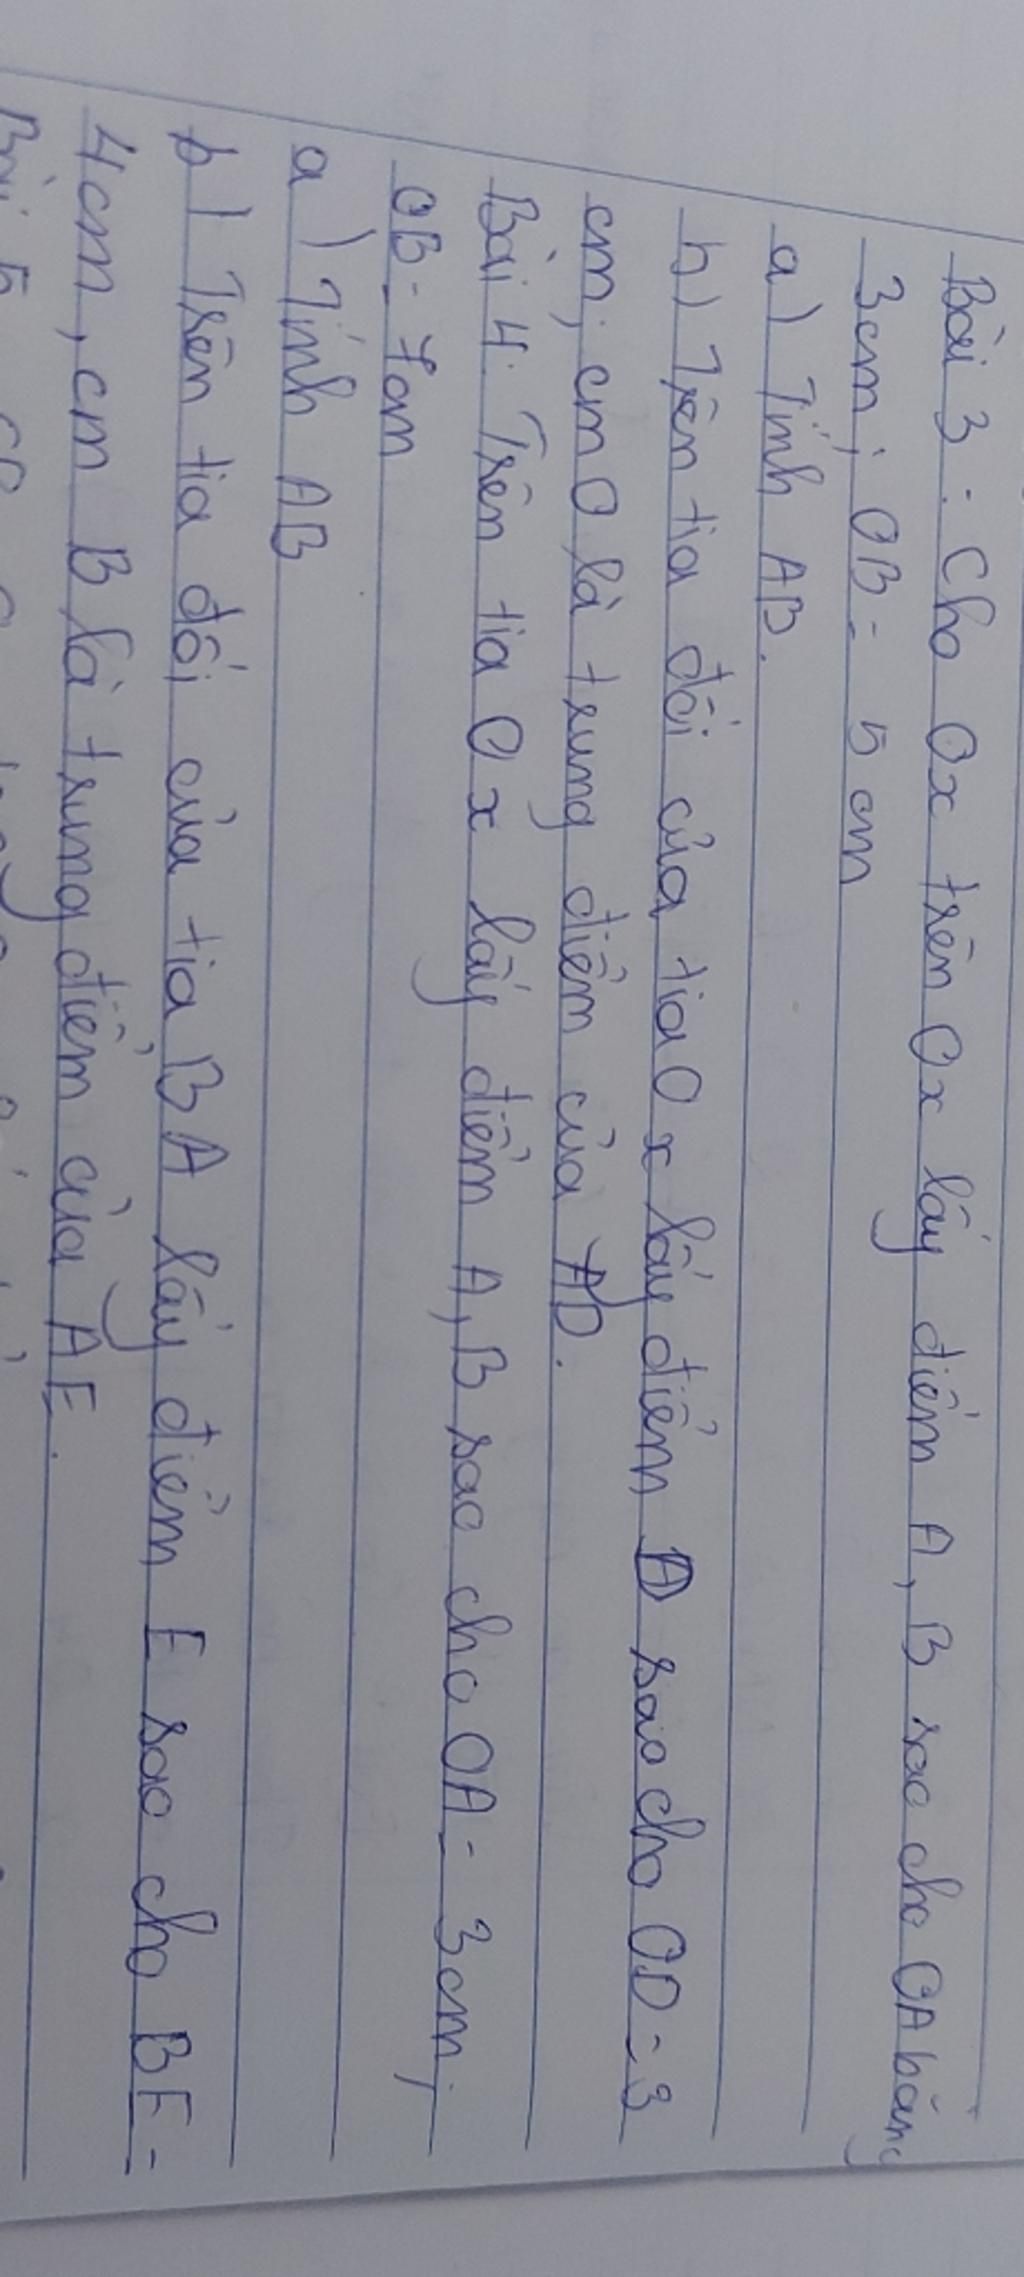 Bài 3: Cho Ox trên Ox lấy điểm A, B sao cho OA bằng
3cm; OB = 5 cm
a) Tính AB.
b) Trên tia đối của tia Ox lấy điểm D sao cho OD = 3
cm; cm O là trung điểm của AD.
Bài 4: Trên tia Ox lấy điểm A, B sao cho OA = 3cm;
OB = 7cm
a) Tính AB
b) Trên tia đối của tia BA lấy điểm E sao cho BE =
4cm, cm B là trung điểm của AE.
Bài 5